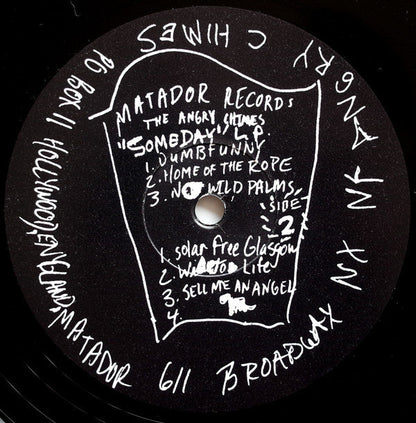 MATADOR RECORDS
THE ANGRY SHINES
"SOMEDAY" L.P.
1. DUMBFUNNY
2. HOME OF THE ROPE
3. WILD PALMS
SIDE
2
1. solar free Glasgow
2. Life
3. SELL ME AN ANGEL
4.
PO BOX 11 HOLLYWOOD, ENGLAND, MATADOR 611 BROADWAY NY NY ANGRY CHIMES